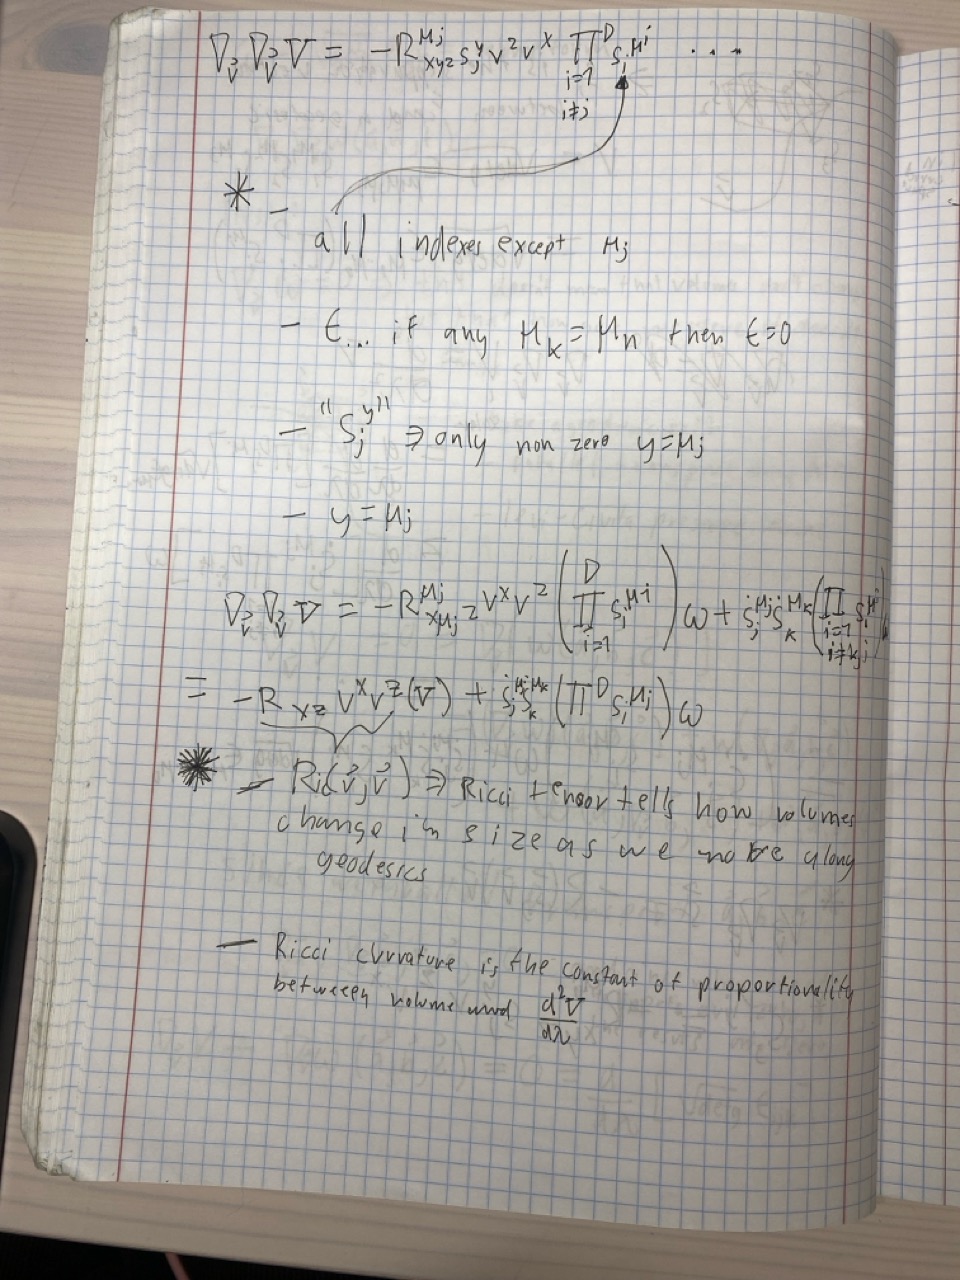 ∇_v⃗ ∇_v⃗ V = -R^{μj}_{xyz} s_j^y v^z v^x ∏_{i=1, i≠j}^D s_i^{μi} ...
* - all indexes except μj
- ϵ... if any μk = μn then ϵ=0
- "S_j^y" ⇒ only non zero y=μj
- y = μj
∇_v⃗ ∇_v⃗ V = -R^{μj}_{xμjz} v^x v^z (∏_{i=1}^D s_i^{μi}) ω + ṡ_j^{μj} ṡ_k^{μk} (∏_{i=1, i≠k,j} s_i^{μi})
= -R_{xz} v^x v^z (V) + ṡ_j^{μj} ṡ_k^{μk} (∏^D s_i^{μj}) ω
* - Ric(v⃗,v⃗) ⇒ Ricci tensor tells how volumes
change in size as we move along
geodesics
- Ricci curvature is the constant of proportionality
between volume and d²V/dλ